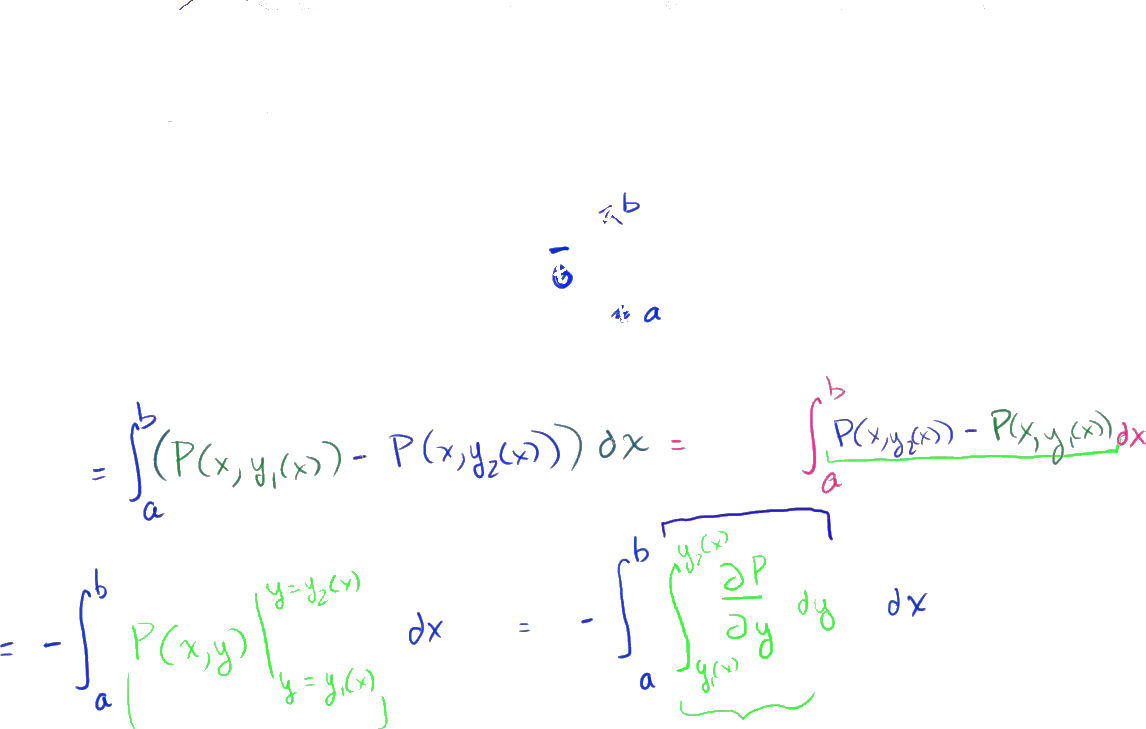 b
−
a
= ∫_a^b (P(x, y₁(x)) − P(x, y₂(x))) dx = ∫_a^b P(x, y₂(x)) − P(x, y₁(x)) dx
= − ∫_a^b P(x, y) |_{y = y₁(x)}^{y = y₂(x)} dx = − ∫_a^b ∫_{y₁(x)}^{y₂(x)} ∂P/∂y dy dx